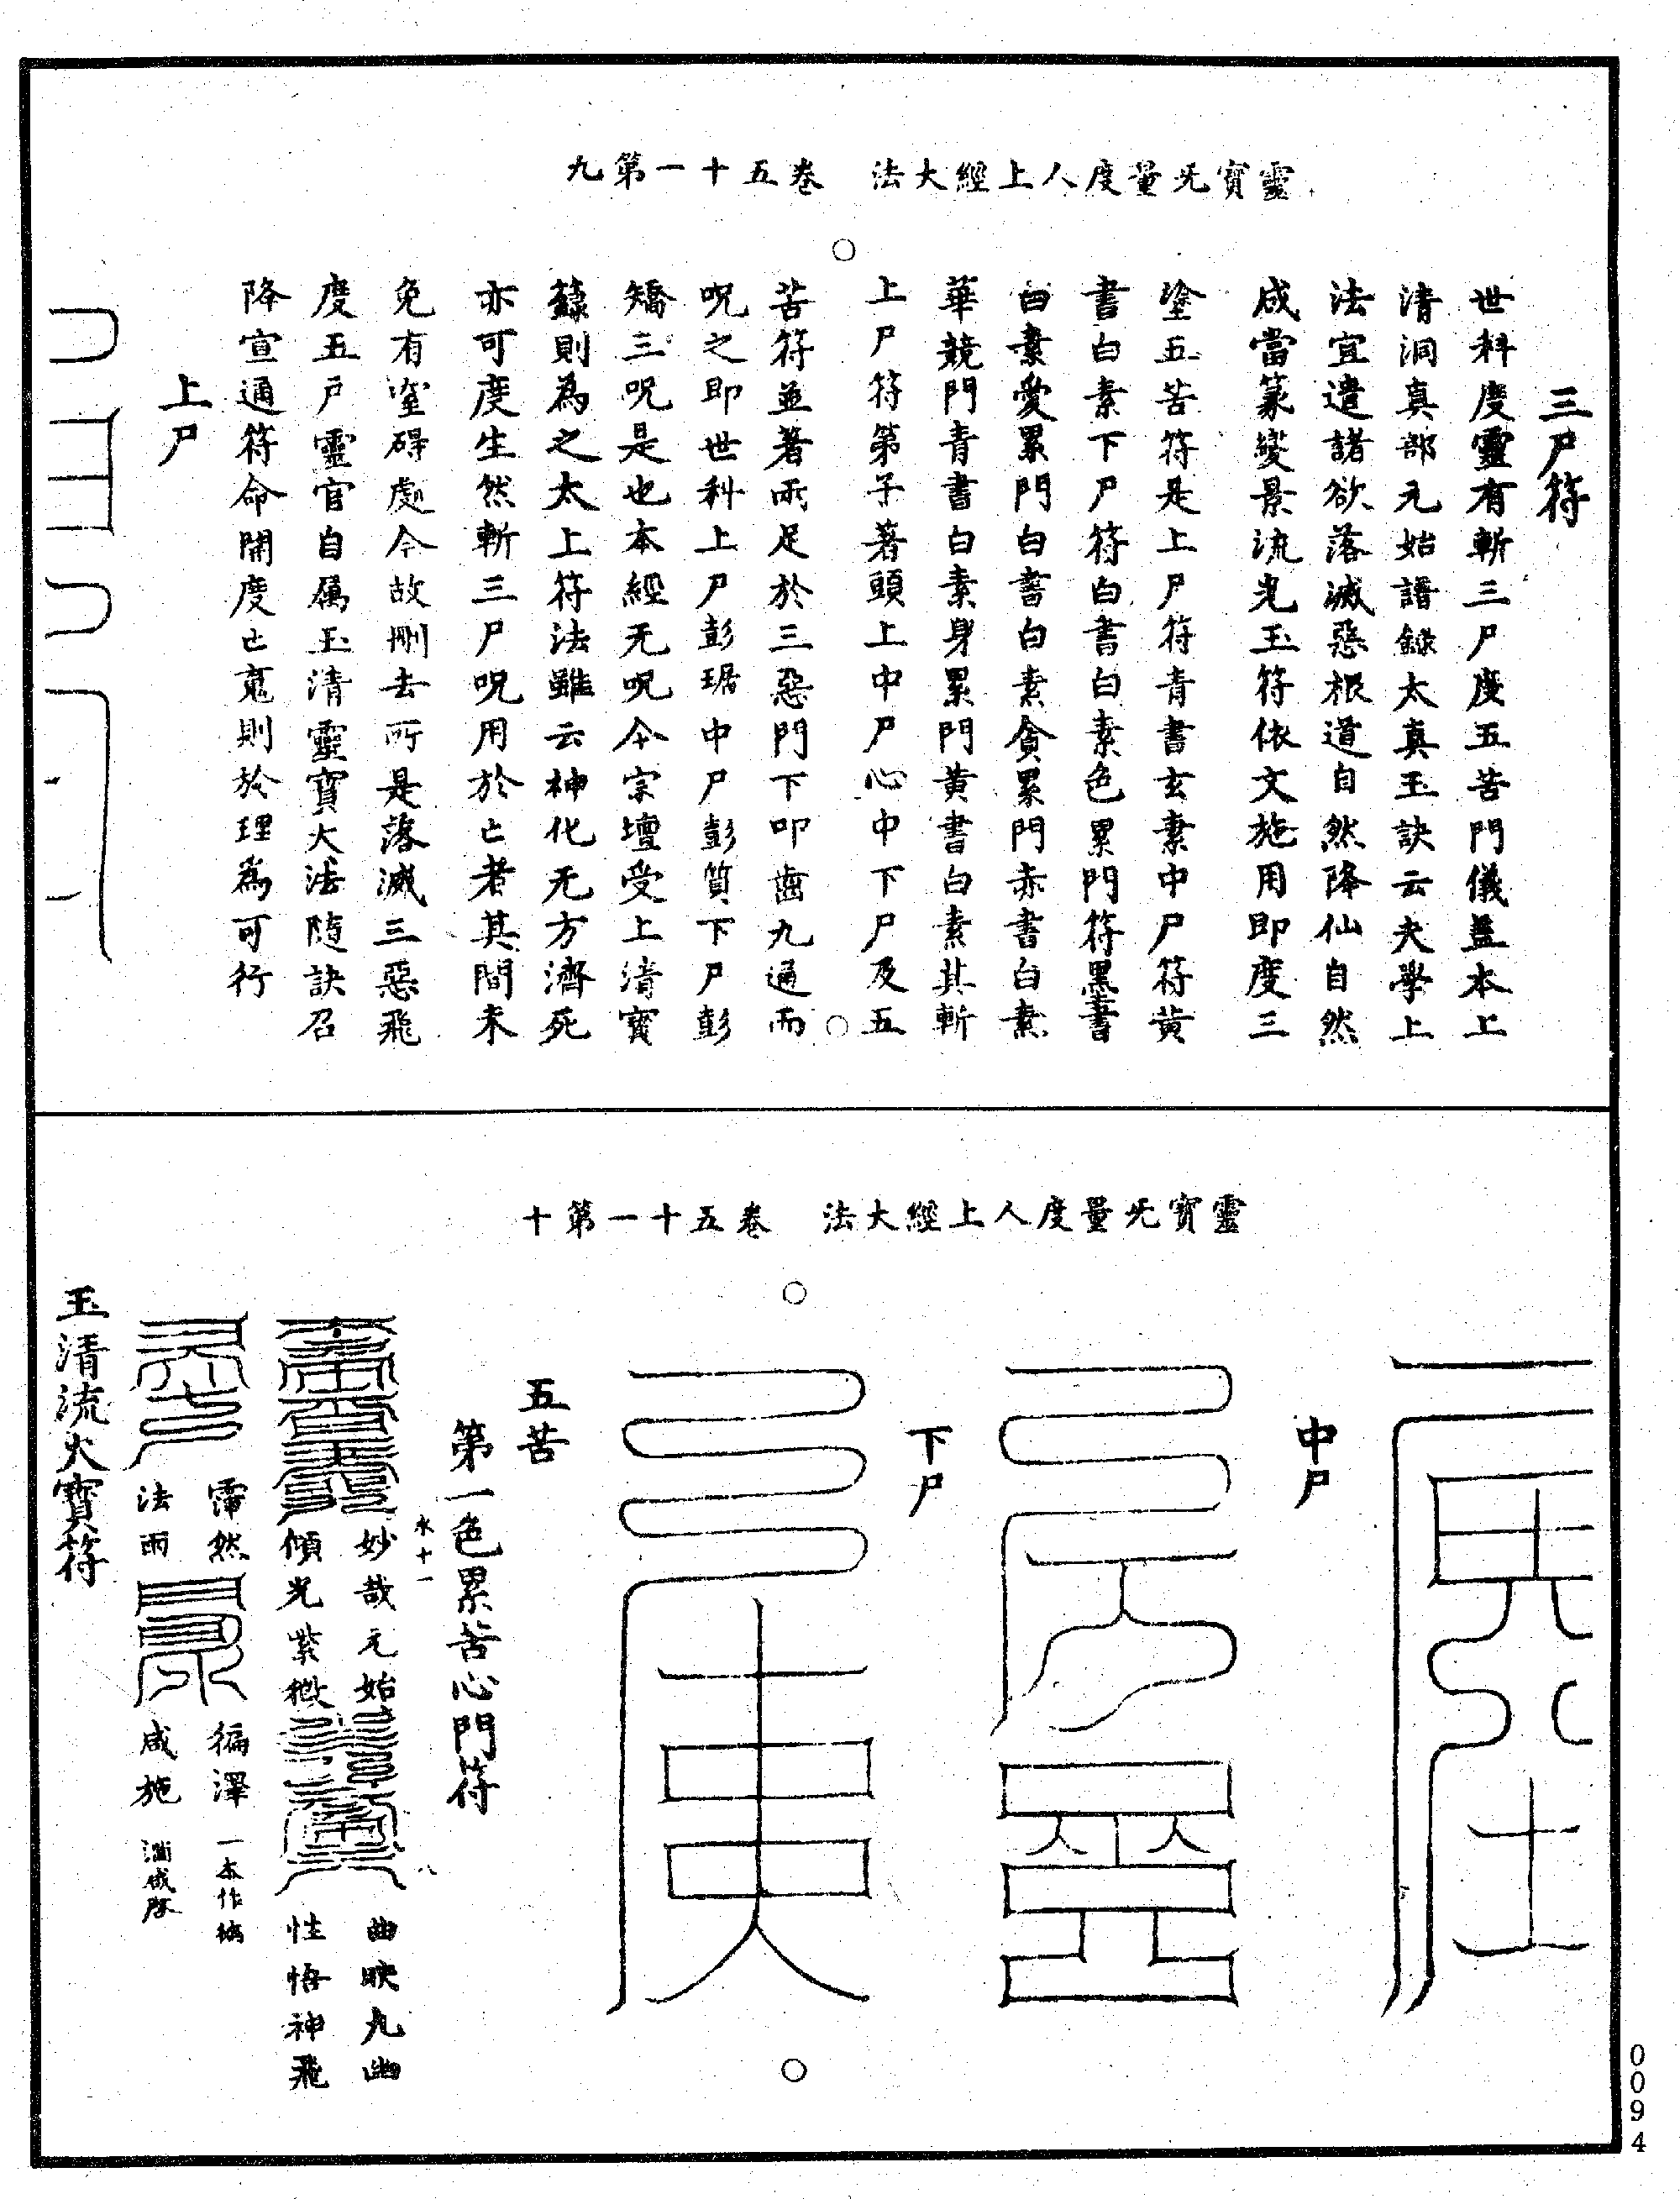 靈寶无量度人上經大法　卷五十一第九
三尸符
世科度靈有斬三尸度五苦門儀蓋本上
清洞真部元始譜錄太真玉訣云夫學上
法宜遣諸欲落滅惡根道自然降仙自然
成當篆變景流光玉符依文施用即度三
塗五苦符是上尸符青書玄素中尸符黃
書白素下尸符白書白素色累門符黑書
白素愛累門白書白素貪累門赤書白素
華競門青書白素身累門黃書白素其斬
上尸符第子著頭上中尸心中下尸及五
苦符並著兩足於三惡門下叩齒九通而
呪之即世科上尸彭琚中尸彭質下尸彭
矯三呪是也本經无呪今宗壇受上清寶
籙則為之太上符法雖云神化无方濟死
亦可度生然斬三尸呪用於亡者其間未
免有窒碍處今故刪去所是落滅三惡飛
度五戶靈官自屬玉清靈寶大法隨訣召
降宣通符命開度亡魂則於理為可行
上尸
靈寶无量度人上經大法　卷五十一第十
中尸
下尸
五苦
第一色累苦心門符
水十一
妙哉元始
傾光紫微
曲映九幽
性悟神飛
霈然
法雨
徧澤
咸施
一本作
玉清流火寶符
0094